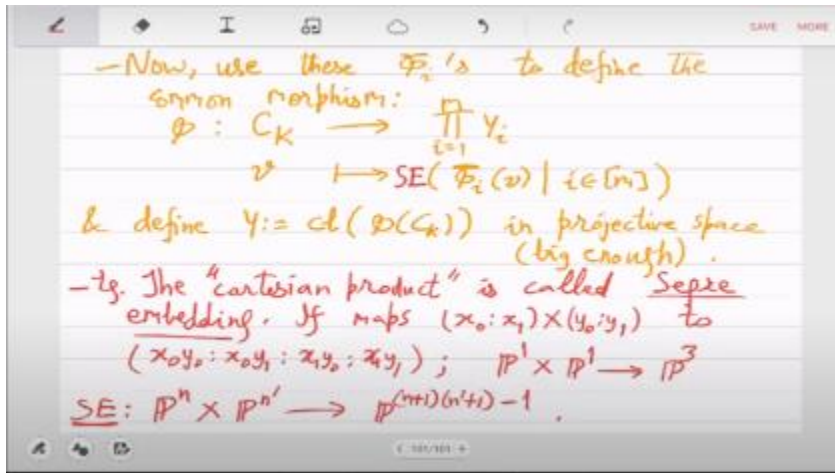 SAVE MORE
- Now, use these φ̄ᵢ's to define the
common morphism:
φ : C_K → ∏_{i=1}^{m} Y_i
v ↦ SE( φ̄ᵢ(v) | i∈[m] )
& define Y := cl( φ(C_K) ) in projective space
(big enough).
- Eg. The "cartesian product" is called Segre
embedding. It maps (x₀:x₁)×(y₀:y₁) to
(x₀y₀ : x₀y₁ : x₁y₀ : x₁y₁) ; ℙ¹ × ℙ¹ → ℙ³
SE : ℙⁿ × ℙⁿ' → ℙ^{(n+1)(n'+1)-1} .
101/101